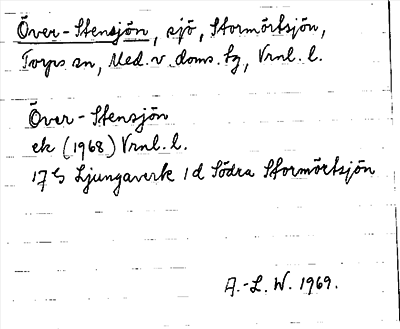 Över-Stensjön, sjö, Stormörtsjön,
Torps sn, Med. v. doms. tg, Vrnl. l.
Över-Stensjön
ek (1968) Vrnl. l.
17 G Ljungaverk 1d Södra Stormörtsjön
A.-L. W. 1969.